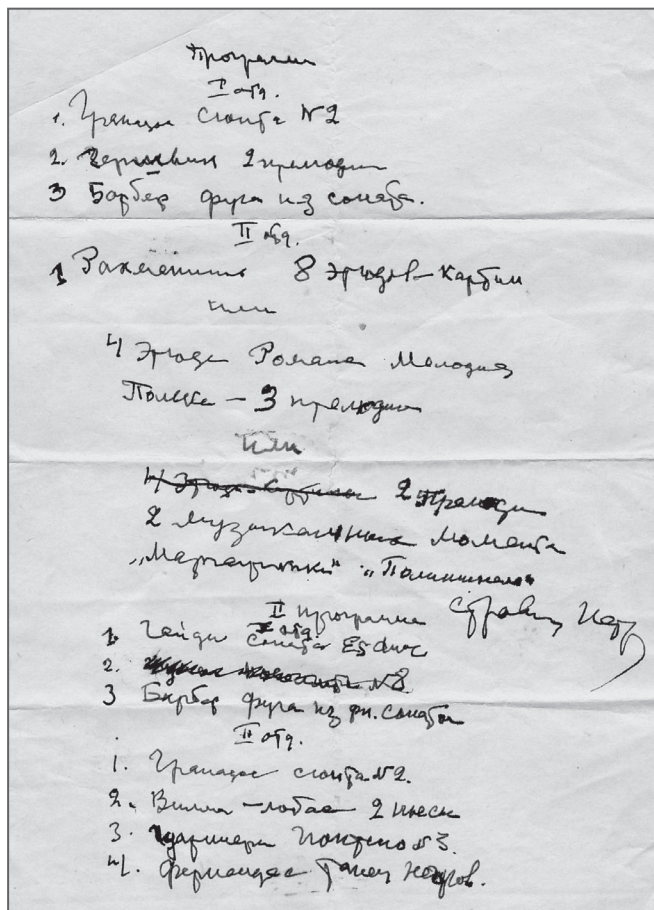 Программа
I отд.
1. Гранадос Сюита N2
2. Гершвин 2 прелюдии
3 Барбер фуга из сонаты.
II отд.
1 Рахманинов 8 Этюдов-Картин
или
4 Этюда Романс Мелодия
Полька – 3 прелюдии
или
4 Этюда-Картины 2 Прелюдии
2 музыкальных момента
„Маргаритки" „Полишинель"
II программа
I отд.
1. Гайдн соната Es dur
2. N8
3 Барбер фуга из фп. сонаты
II отд.
1. Гранадос сюита N2.
2. Вилла-лобос 2 пьесы
3. Гварниери Понтейо N3.
4. Фернандес Танец негров.